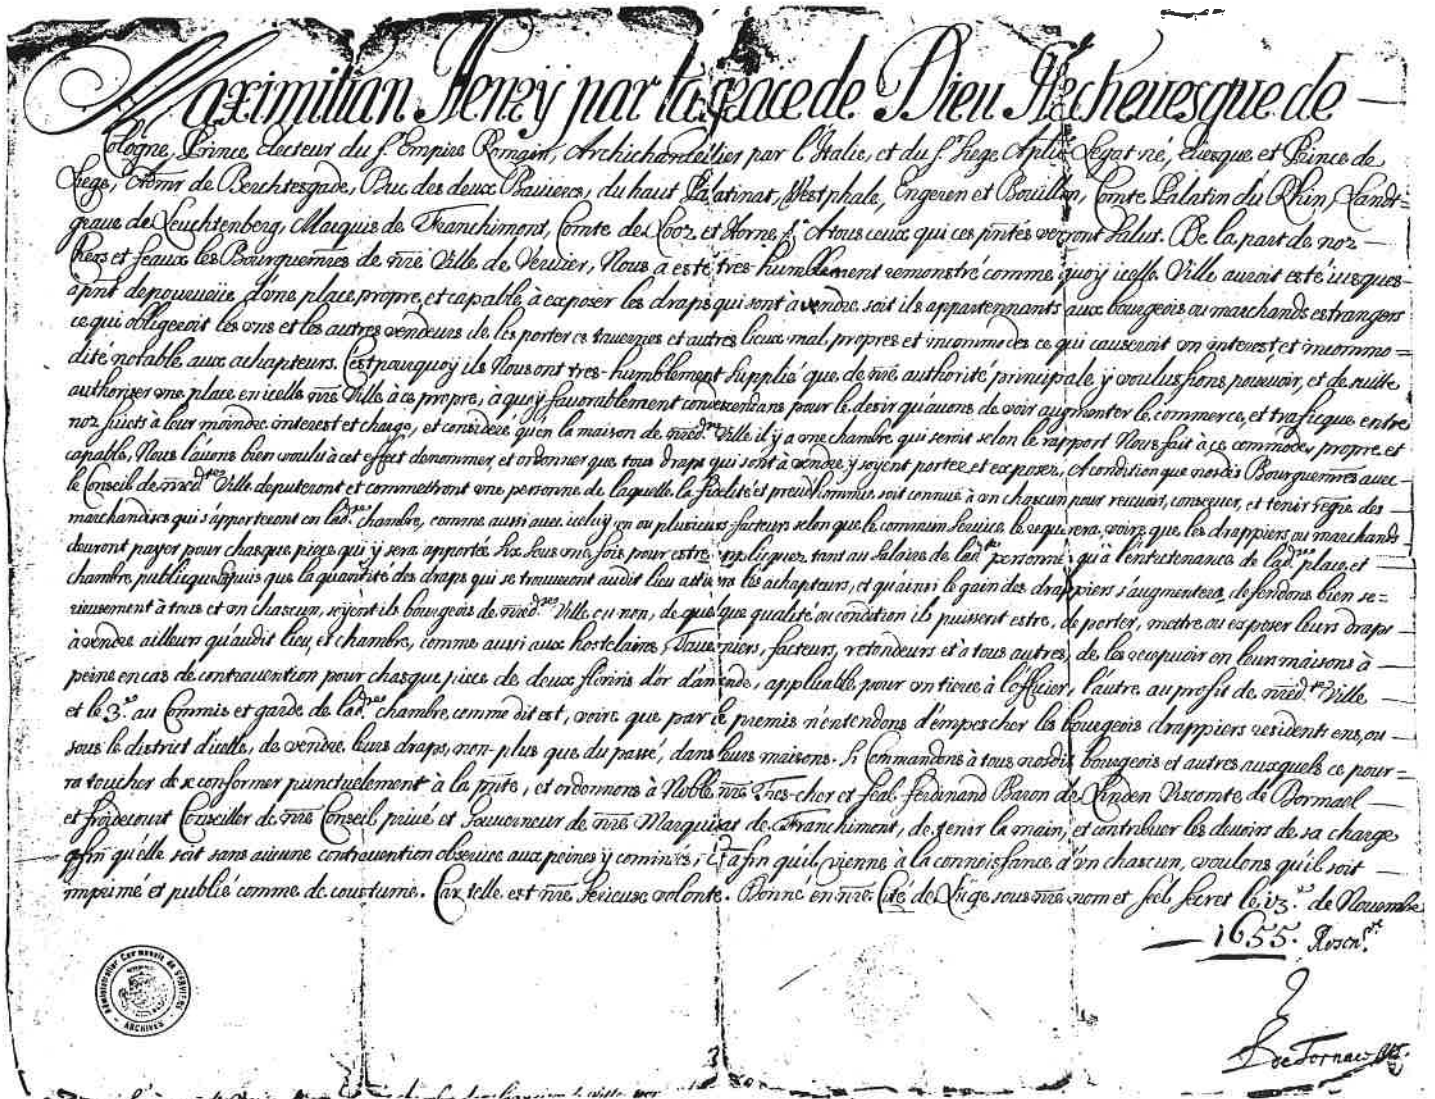 Maximilian Henry par la grace de Dieu Archevesque de
Cologne, Prince Electeur du St. Empire Romain, Archichancellier par l'Italie, et du St. Siege Aplicq Legat né, Evesque et Prince de
Liege, Admr de Berchtesgade, Duc des deux Bavieres, du haut Palatinat, Westphale, Engeren et Bouillon, Comte Palatin du Rhin, Landt=
grave de Leuchtenberg, Marquis de Franchimont, Comte de Looz et Horne, A tous ceux qui ces pntes verront salut. De la part de noz
chers et feaux les Bourguemres de nre Ville de Vervier, Nous a esté tres-humblement remonstré comme quoy icelle Ville auroit esté iusques
à pnt depourveüe d'une place propre, et capable à exposer les draps qui sont à vendre, soit ils appartennants aux bourgeois ou marchands estrangers
ce qui obligeroit les uns et les autres vendeurs de les porter es tavernes et autres lieux mal propres et incommodes ce qui causeroit un interest, et incommo=
dité notable aux achapteurs. C'est pourquoy ils Nous ont tres-humblement supplié que de nre authorité principale y voulussions pourvoir, et de suitte
authoriser une place en icelle nre Ville à ce propre, à quoy favorablement condescendans pour le desir qu'avons de voir augmenter le commerce, et traficque entre
noz suiets à leur moindre interest et charge, et consideré qu'en la maison de nred. Ville il y a une chambre qui seroit selon le rapport Nous fait à ce commode, propre et
capable, Nous l'avons bien voulu à cet effect denommer, et ordonner que tous draps qui sont à vendre y soyent portez et exposez, A condition que nosdis Bourguemres avec
le Conseil de nred. Ville deputeront et commettront une personne de laquelle la fidelité et preudhommie soit connuë à un chascun pour recevoir, conserver, et tenir regre des
marchandises qui s'apporteront en lad. chambre, comme aussi avec iceluy un ou plusieurs facteurs selon que le commun service le requirera, voire que les drappiers ou marchands
devront payer pour chasque piece qui y sera apportée six sous une fois pour estre applicquez tant au salaire de lad. personne qu'à l'entretenance de lad. place, et
chambre publicque. Et puis que la quantité des draps qui se trouveront audit lieu attirera les achapteurs, et qu'ainsi le gain des drappiers s'augmentera, defendons bien se=
rieusement à tous et un chascun, soyent ils bourgeois de nred. Ville ou non, de quelque qualité ou condition ils puissent estre, de porter, mettre ou exposer leurs draps
à vendre ailleurs qu'audit lieu, et chambre, comme aussi aux hostelains, Taverniers, facteurs, retondeurs et à tous autres, de les recepvoir en leurs maisons à
peine en cas de contravention pour chasque piece de deux florins d'or d'amende, applicable, pour un tiers à l'officier, l'autre au profit de nred. Ville
et le 3. au Commis et garde de lad. chambre, comme dit est, voire que par le premis n'entendons d'empescher les bourgeois drappiers residents ens, ou
sous le district d'icelle, de vendre leurs draps, non-plus que du passé, dans leurs maisons. Si Commandons à tous nosdis bourgeois et autres auxquels ce pour=
ra toucher de se conformer punctuelement à la pnte, et ordonnons à Noble nre Tres-cher et feal Ferdinand Baron de Linden Viscomte de Dormael
et froidecourt Conseiller de nre Conseil privé et Gouverneur de nre Marquisat de Franchimont, de tenir la main, et contribuer les devoirs de sa charge
afin qu'elle soit sans aucune contravention observée aux peines y commises, Et afin qu'il vienne à la connoissance d'un chascun, voulons qu'il soit
imprimé et publié comme de coustume. Car telle est nre serieuse volonté. Donné en nre Cité de Liege sous nre nom et séel secret le 13. de Novembre
1655.
Administration Communale de Verviers
ARCHIVES